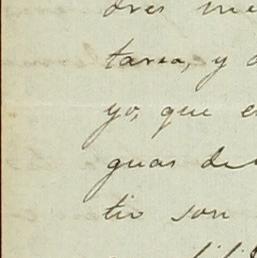 dres me
tarea, y
yo, que e
guas de
tio son